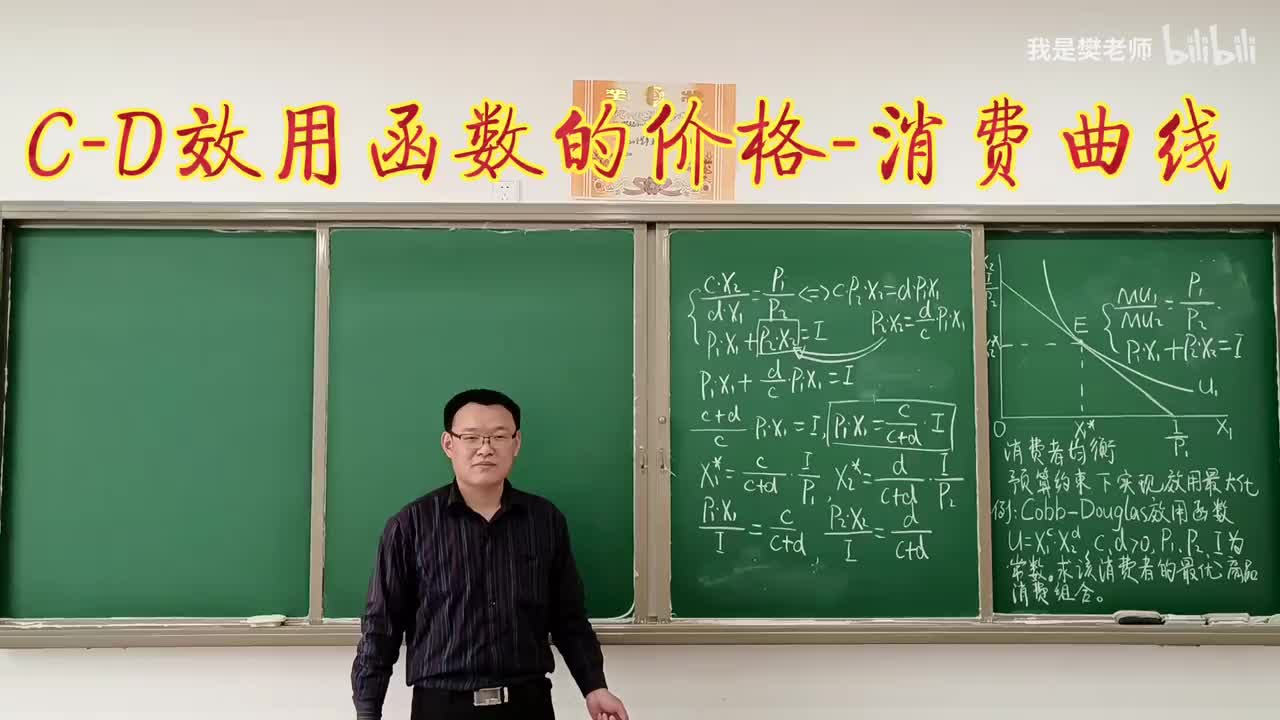 我是樊老师 bilibili
C-D效用函数的价格-消费曲线
C·X₂/d·X₁=P₁/P₂⇔C·P₂·X₂=d·P₁X₁
P₁·X₁+P₂·X₂=I
P₂·X₂=d/c·P₁·X₁
P₁·X₁+d/c·P₁X₁=I
c+d/c P₁·X₁=I, P₁·X₁=c/c+d·I
X₁*=c/c+d·I/P₁, X₂*=d/c+d·I/P₂
P₁·X₁/I=c/c+d, P₂·X₂/I=d/c+d
X₂
I/P₂
X₂*
E
U₁
O
X₁*
I/P₁
X₁
MU₁/MU₂=P₁/P₂.
P₁·X₁+P₂·X₂=I
消费者均衡
预算约束下实现效用最大化
例:Cobb-Douglas效用函数
U=X₁ᶜX₂ᵈ, c,d>0, P₁,P₂,I为
常数。求该消费者的最优商品
消费组合。